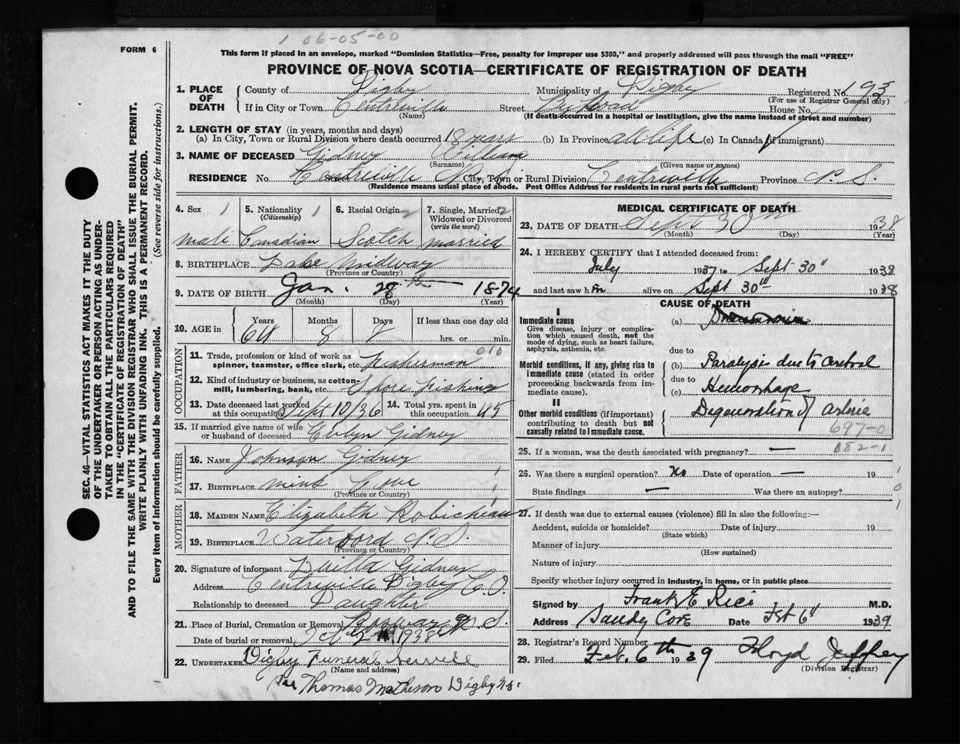 1 06-05-00
FORM 6
This form if placed in an envelope, marked "Dominion Statistics—Free, penalty for improper use $300," and properly addressed will pass through the mail "FREE"
PROVINCE OF NOVA SCOTIA—CERTIFICATE OF REGISTRATION OF DEATH
SEC. 46—VITAL STATISTICS ACT MAKES IT THE DUTY
OF THE UNDERTAKER OR PERSON ACTING AS UNDER-
TAKER TO OBTAIN ALL THE PARTICULARS REQUIRED
IN THE "CERTIFICATE OF REGISTRATION OF DEATH"
AND TO FILE THE SAME WITH THE DIVISION REGISTRAR WHO SHALL ISSUE THE BURIAL PERMIT.
WRITE PLAINLY WITH UNFADING INK. THIS IS A PERMANENT RECORD.
Every item of Information should be carefully supplied. (See reverse side for instructions.)
1. PLACE OF DEATH County of Digby Municipality of Digby Registered No. 193
(For use of Registrar General only)
If in City or Town Centreville Street House No.
(Name) (If death occurred in a hospital or institution, give the name instead of street and number)
2. LENGTH OF STAY (in years, months and days)
(a) In City, Town or Rural Division where death occurred 18 years (b) In Province all life (c) In Canada (if immigrant)
3. NAME OF DECEASED Gidney William
(Surname) (Given name or names)
RESIDENCE No. Centreville N.S. City, Town or Rural Division Centreville Province N.S.
(Residence means usual place of abode. Post Office Address for residents in rural parts not sufficient)
4. Sex 1 5. Nationality 1 (Citizenship) 6. Racial Origin 2 7. Single, Married, Widowed or Divorced (write the word) 2
male Canadian Scotch married
8. BIRTHPLACE Lake Midway
(Province or County)
9. DATE OF BIRTH Jan. 28th 1874
(Month) (Day) (Year)
10. AGE in Years Months Days If less than one day old
64 8 2 hrs. or min.
OCCUPATION
11. Trade, profession or kind of work as spinner, teamster, office clerk, etc. Fisherman 010
12. Kind of industry or business, as cotton-mill, lumbering, bank, etc. Shore Fishing
13. Date deceased last worked at this occupation Sept 10/36 14. Total yrs. spent in this occupation 45
15. If married give name of wife or husband of deceased Evlyn Gidney
FATHER
16. Name Johnson Gidney
17. Birthplace Mink Cove
(Province or County)
MOTHER
18. Maiden Name Elizabeth Robicheau
19. Birthplace Waterford N.S.
(Province or County)
20. Signature of informant Gidney
Address Centreville Digby Co.
Relationship to deceased Daughter
21. Place of Burial, Cremation or Removal N.S.
Date of burial or removal Oct 2 1938
22. UNDERTAKER Digby Funeral Service
(Name and address)
Per Thomas Matheson Digby N.S.
MEDICAL CERTIFICATE OF DEATH
23. DATE OF DEATH Sept 30th 1938
(Month) (Day) (Year)
24. I HEREBY CERTIFY that I attended deceased from:
July 1937 to Sept 30th 1938
and last saw him alive on Sept 30th 1938
CAUSE OF DEATH
I
Immediate cause (a)
Give disease, injury or complication which caused death, not the mode of dying, such as heart failure, asphyxia, asthenia, etc.
due to
Morbid conditions, if any, giving rise to immediate cause (stated in order proceeding backwards from immediate cause).
(b) Paralysis due to Cerebral
due to
(c) Hemorrhage
II
Other morbid conditions (if important) contributing to death but not causally related to immediate cause.
Degeneration of Arteries
697-0
082-1
25. If a woman, was the death associated with pregnancy? —
26. Was there a surgical operation? No Date of operation — 19 1
State findings — Was there an autopsy? 0
27. If death was due to external causes (violence) fill in also the following:— 1
Accident, suicide or homicide? Date of injury 19
(State which)
Manner of injury
(How sustained)
Nature of injury
Specify whether injury occurred in Industry, in home, or in public place
Signed by Frank E Rice M.D.
Address Sandy Cove Date Feb 6th 1939
28. Registrar's Record Number
29. Filed Feb. 6th 1939 Floyd Jeffrey
(Division Registrar)